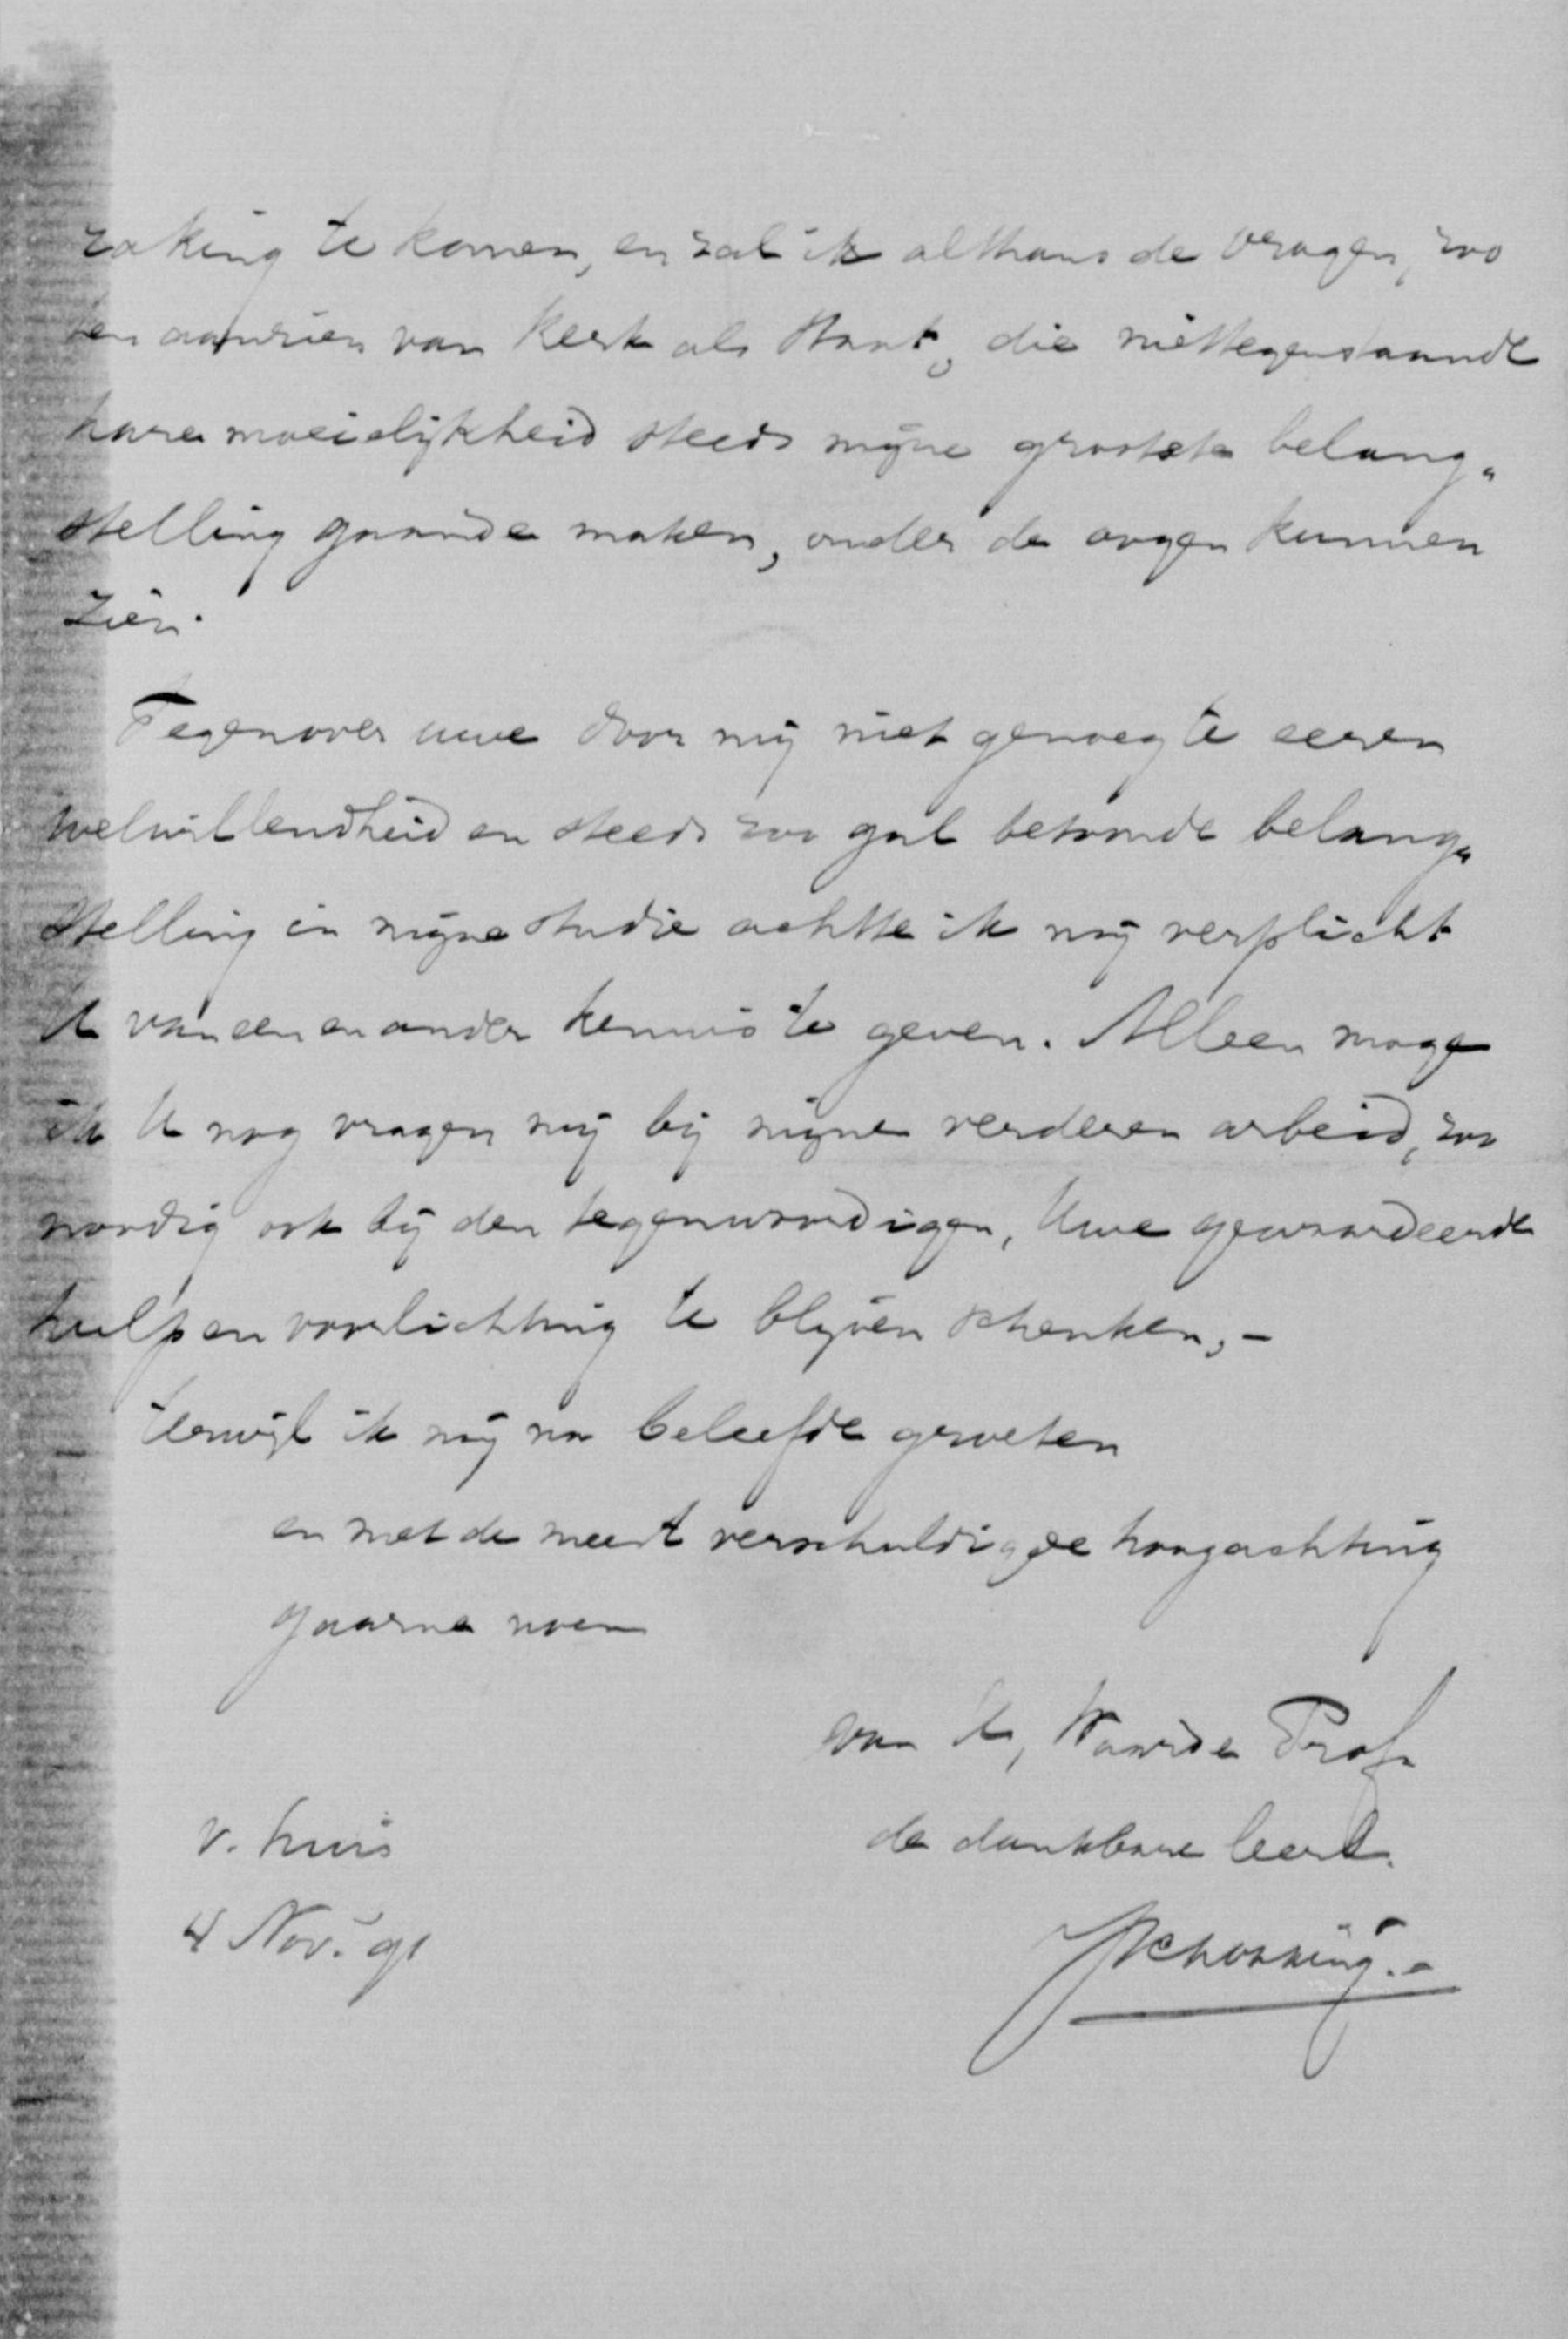 raking te komen, en zal ik althans de vragen, zoo
ten aanzien van Kerk als Staat, die niettegenstaande
hare moeielijkheid steeds mijne grootste belang„
stelling gaande maken, onder de oogen kunnen
zien.
Tegenover uwe door mij niet genoeg te eeren
welwillendheid en steeds zoo gul betoonde belang„
stelling in mijne studie achtte ik mij verplicht
U van een en ander kennis te geven. Alleen moge
ik U nog vragen mij bij mijne verderen arbeid, zoo
noodig ook bij den tegenwoordigen, Uwe gewaardeerde
hulp en voorlichting te blijven schenken, –
terwijl ik mij na beleefde groeten
en met de meest verschuldigde hoogachting
gaarne noem
van U, Waarde Prof
de dankbare leerl.
V. huis
4 Nov. 91
JSchokking. –